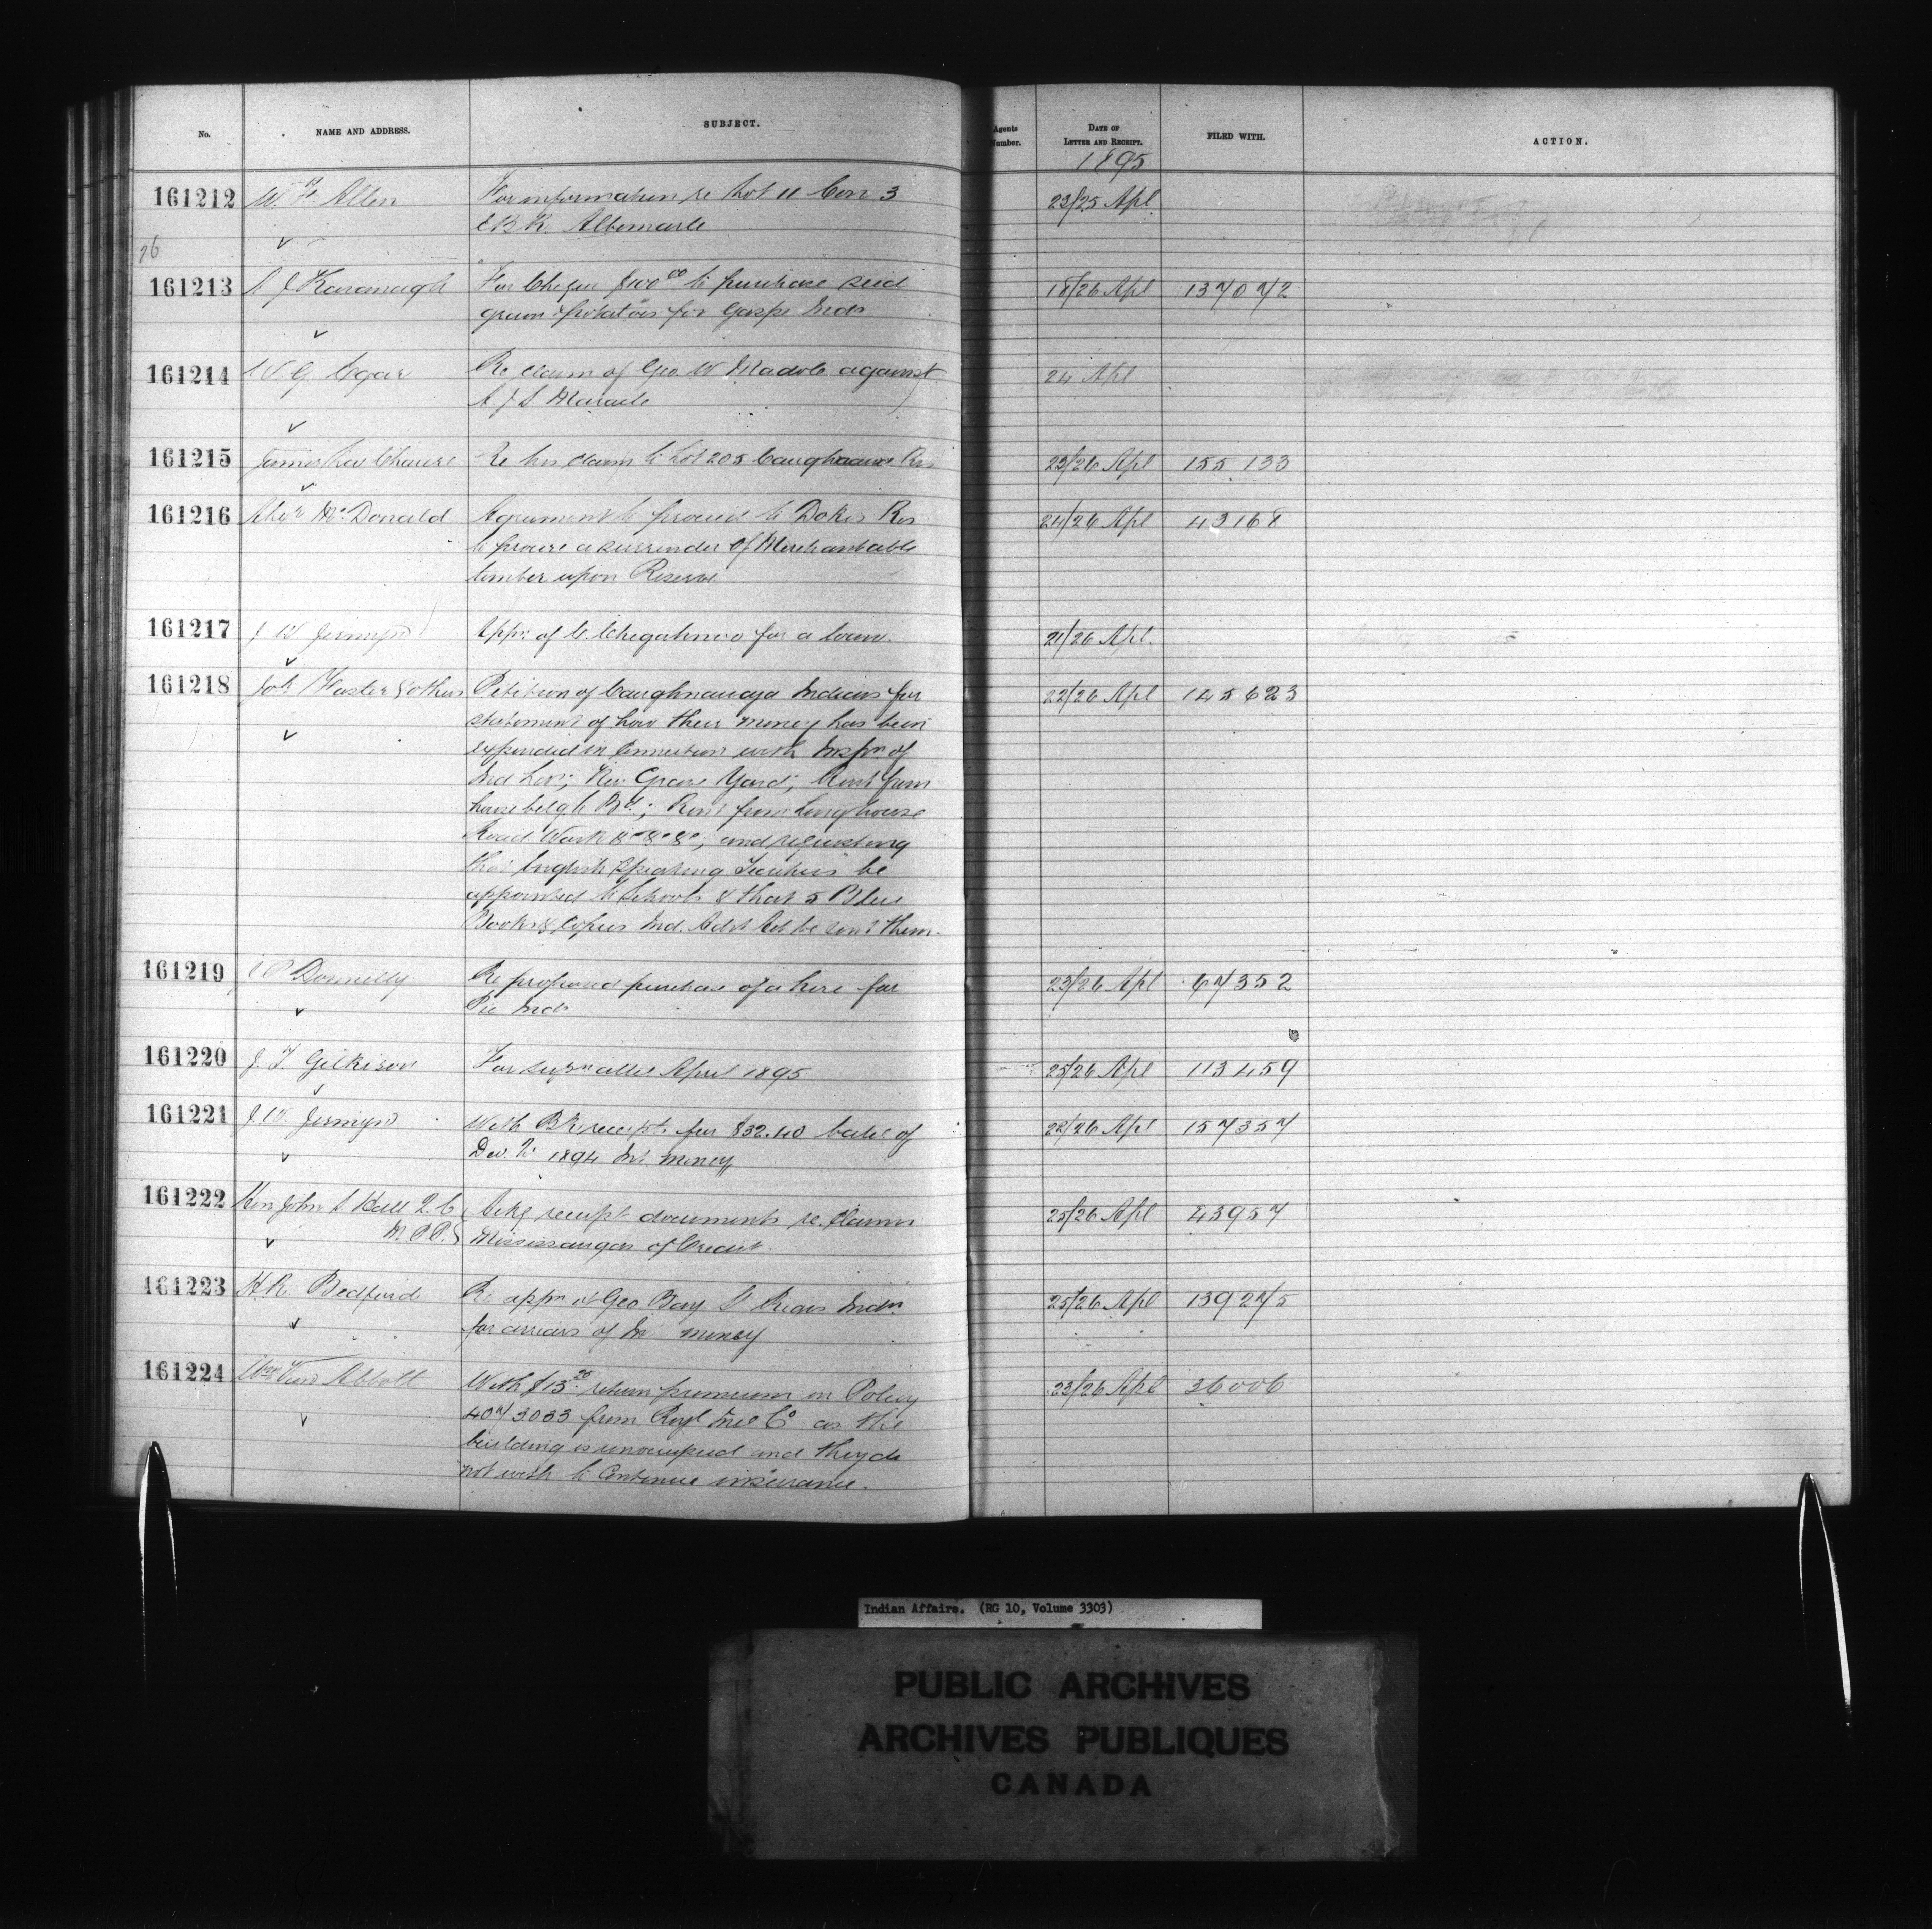 No.
NAME AND ADDRESS.
SUBJECT.
Agents
Number.
DATE OF
LETTER AND RECEIPT.
FILED WITH.
ACTION.
1895
161212 W. F. Allen For information re Lot 11 Con 3 23/25 Apl
E B R Albemarle
26
161213 J Kavanagh For Cheque $100 00 to purchase seed 18/26 Apl 137072
grain & potatoes for Gaspe Inds
161214 W. G. Egar Re claim of Geo. W Maracle against 24 Apl
A. J. S. Maracle
161215 James Re his claim to Lot 205 Caughnawa Res 23/26 Apl 155 133
161216 Alexr McDonald Agreement to proceed to Dokis Res 24/26 Apl 43168
to procure a surrender of Merchantable
timber upon Reserve
161217 J W Jermyn Appn of C. Chegahnoo for a loan. 21/26 Apl.
161218 Joh Foster & others Petition of Caughnawaga Indians for 22/26 Apl 145623
statement of how their money has been
expended in Connection with Inspn of
Ind Lots; New Grave Yard; Rent from
house belg to Bd; Rent from Long house
Road Work &c &c &c; and requesting
that English Speaking Teachers be
appointed to Schools & that 5 Blue
Books & Copies Ind. Advt Act be sent them.
161219 J P Donnelly Re proposed purchase of a horse for 23/26 Apl 67352
Pic Inds
161220 J. T. Gilkison For supn allce April 1895 25/26 Apl 113459
161221 J. W. Jermyn With Bk receipt for $32.40 balce of 22/26 Apl 157357
Dec. to 1894 Int. money
161222 Hon John S Hall Q. C Ackg receipt documents re. Claims 25/26 Apl 43957
M. P. P. Mississaugas of Credit.
161223 H. R. Bedford Re appn of Geo Bay & Inds 25/26 Apl 139275
for arrears of Int money
161224 Wm Abbott With $13. 20 return premium on Policy 23/26 Apl 36006
407/3033 from Royl Ince Co as the
building is unoccupied and they do
not wish to Continue insurance.
Indian Affairs. (RG 10, Volume 3303)
PUBLIC ARCHIVES
ARCHIVES PUBLIQUES
CANADA